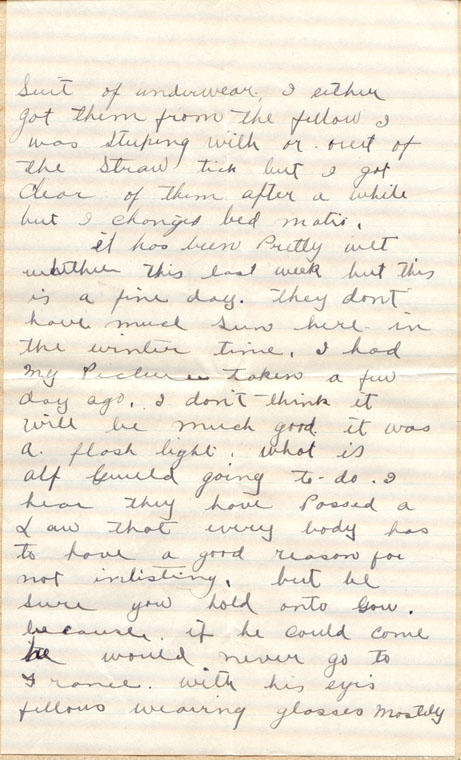 Suit of underwear, I either
got them from the fellow I
was sleeping with or out of
the Straw tick but I got
Clear of them after a while
but I changed bed mates.
it has been Pretty wet
weather this last week but this
is a fine day. they don't
have much Sun here in
the winter time. I had
My Picture taken a few
day ago. I don't think it
will be much good it was
a flash light. what is
alf going to do. I
hear they have Passed a
Law that every body has
to have a good reason for
not inlisting. but be
Sure you hold onto
because. if he could come
he would never go to
France. with his eyes
fellows wearing glasses mostly